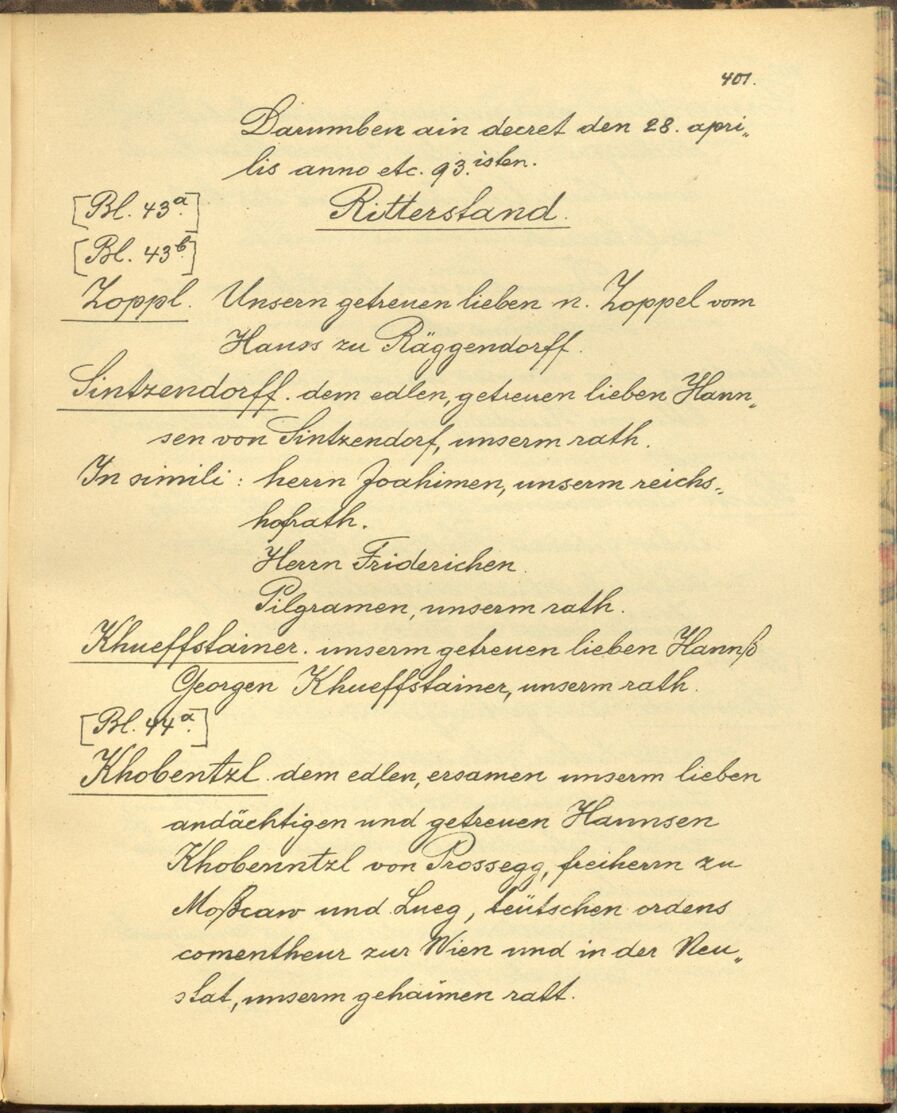 401.
Darumben ain decret den 28. apri„
lis anno etc. 93.isten.
[Bl. 43a.] Ritterstand.
[Bl. 43b.]
Zoppl. Unsern getreuen lieben n. Zoppel vom
Hauss zu Räggendorff.
Sintzendorff. dem edlen, getreuen lieben Hann„
sen von Sintzendorf, unserm rath.
In simili: herrn Joahimen, unserm reichs„
hofrath.
Herrn Friderichen.
Pilgramen, unserm rath.
Khueffstainer. unserm getreuen lieben Hannß
Georgen Khueffstainer, unserm rath.
[Bl. 44a.]
Khobentzl. dem edlen, ersamen unserm lieben
andächtigen und getreuen Hannsen
Khobenntzl von Prossegg, freiherrn zu
Moßcaw und Lueg, teütschen ordens
comentheur zur Wien und in der Neu„
stat, unserm gehaimen ratt.